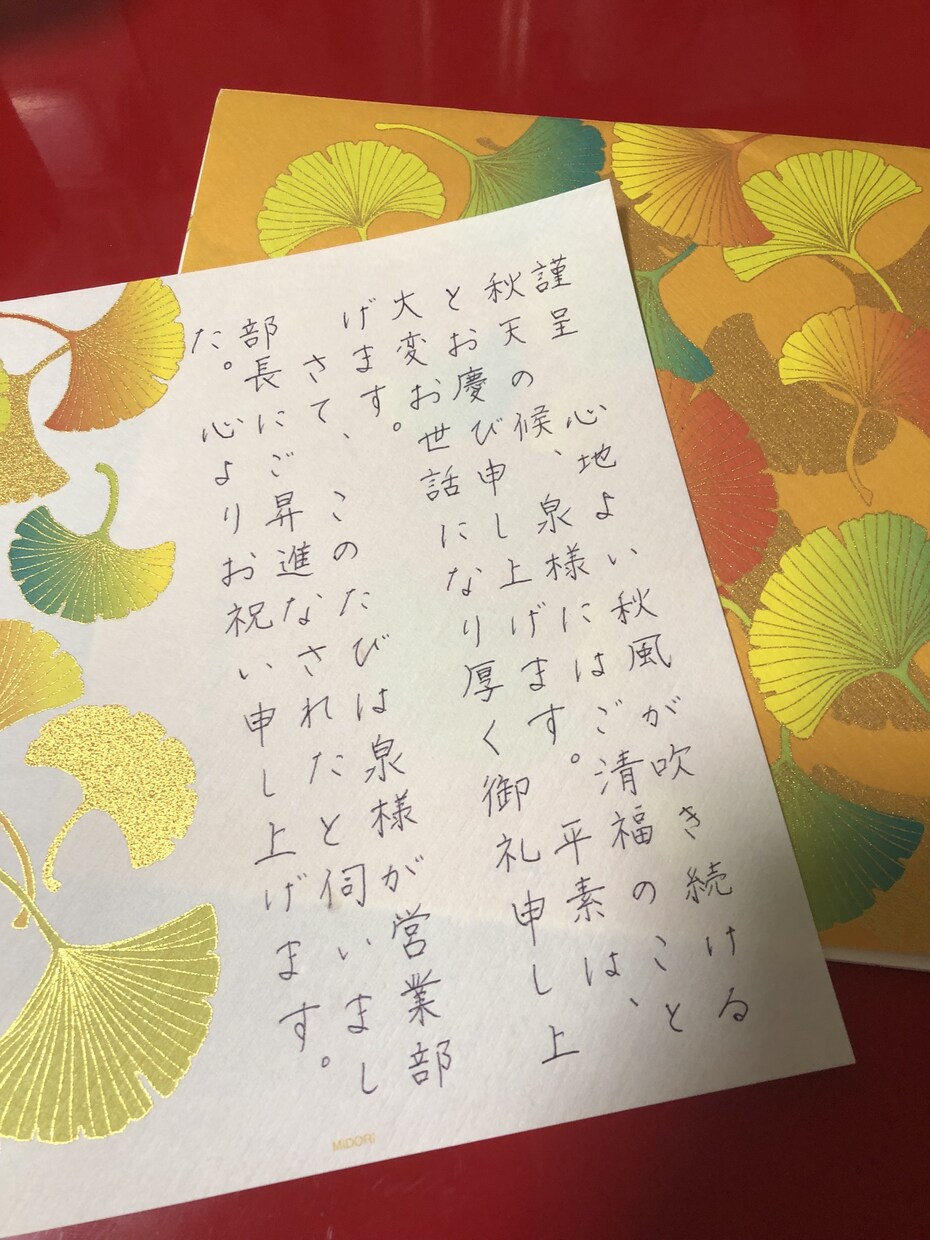 謹呈　心地よい秋風が吹き続ける
秋天の候、泉様にはご清福のこと
とお慶び申し上げます。平素は、
大変お世話になり厚く御礼申し上
げます。
さて、このたびは泉様が営業部
部長にご昇進なされたと伺いまし
た。心よりお祝い申し上げます。
MiDORi